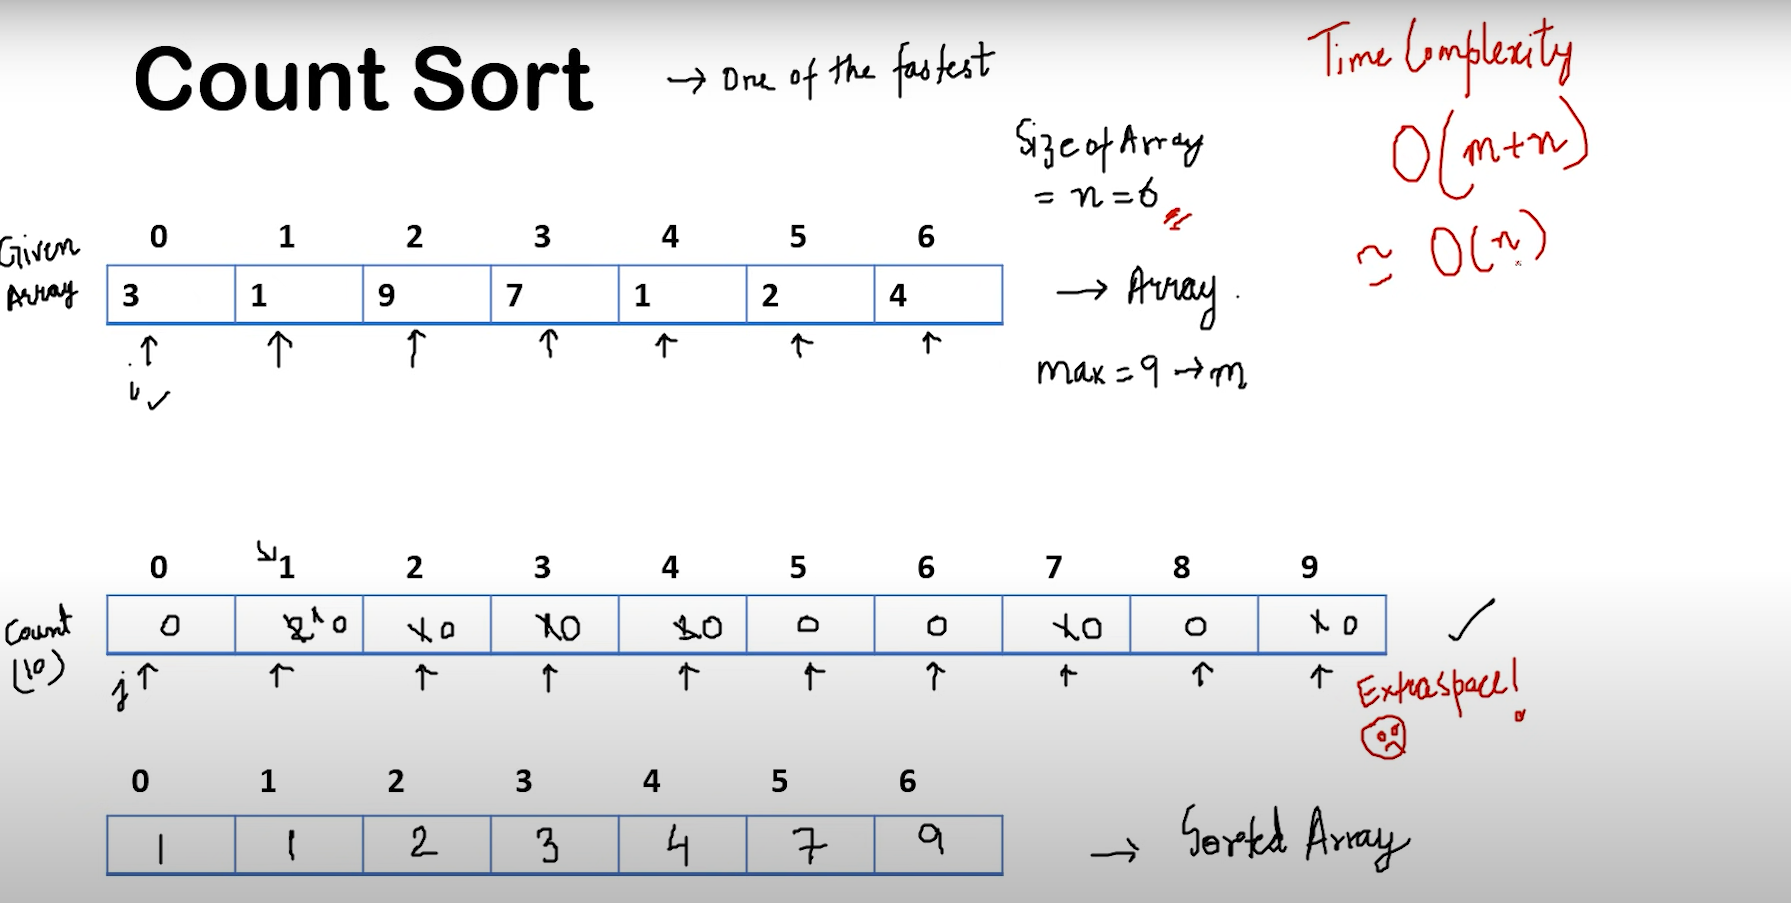 Count Sort → One of the fastest
Time Complexity
O(m+n)
≃ O(n)
Size of Array
= n = 6
Given
Array
0 1 2 3 4 5 6
3 1 9 7 1 2 4
→ Array.
max = 9 → m
i
0 1 2 3 4 5 6 7 8 9
Count
(10)
0 2 1 0 1 0 1 0 1 0 0 0 1 0 0 1 0
j
Extraspace!
0 1 2 3 4 5 6
1 1 2 3 4 7 9
→ Sorted Array